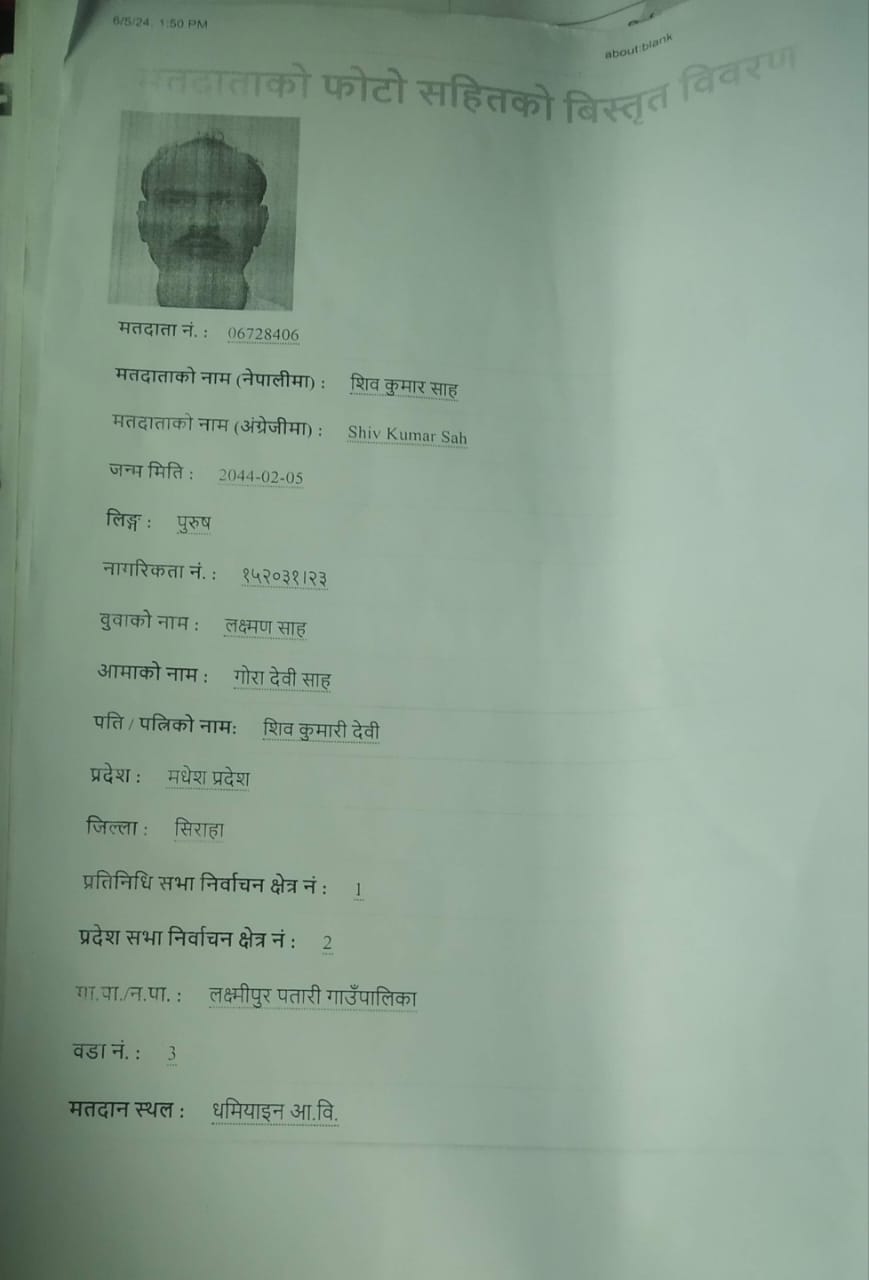 6/5/24, 1:50 PM
about:blank
मतदाताको फोटो सहितको बिस्तृत विवरण
मतदाता नं. : 06728406
मतदाताको नाम (नेपालीमा) : शिव कुमार साह
मतदाताको नाम (अंग्रेजीमा) : Shiv Kumar Sah
जन्म मिति : 2044-02-05
लिङ्ग : पुरुष
नागरिकता नं. : १५२०३१।२३
वुवाको नाम : लक्ष्मण साह
आमाको नाम : गोरा देवी साह
पति / पत्निको नाम: शिव कुमारी देवी
प्रदेश : मधेश प्रदेश
जिल्ला : सिराहा
प्रतिनिधि सभा निर्वाचन क्षेत्र नं : 1
प्रदेश सभा निर्वाचन क्षेत्र नं : 2
गा.पा./न.पा. : लक्ष्मीपुर पतारी गाउँपालिका
वडा नं. : 3
मतदान स्थल : धमियाइन आ.वि.